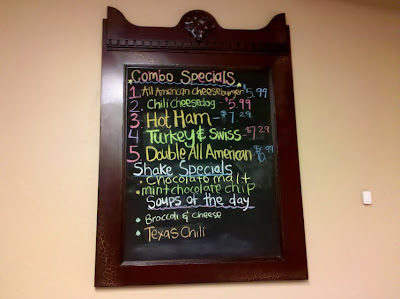 Combo Specials
1. All American cheeseburger $5.99
2. Chili cheesedog - $5.99
3. Hot Ham - $7.29
4. Turkey & Swiss - $7.29
5. Double All American
Shake Specials
• Chocolate malt
• mint chocolate chip
Soups of the day
• Broccoli & Cheese
• Texas Chili